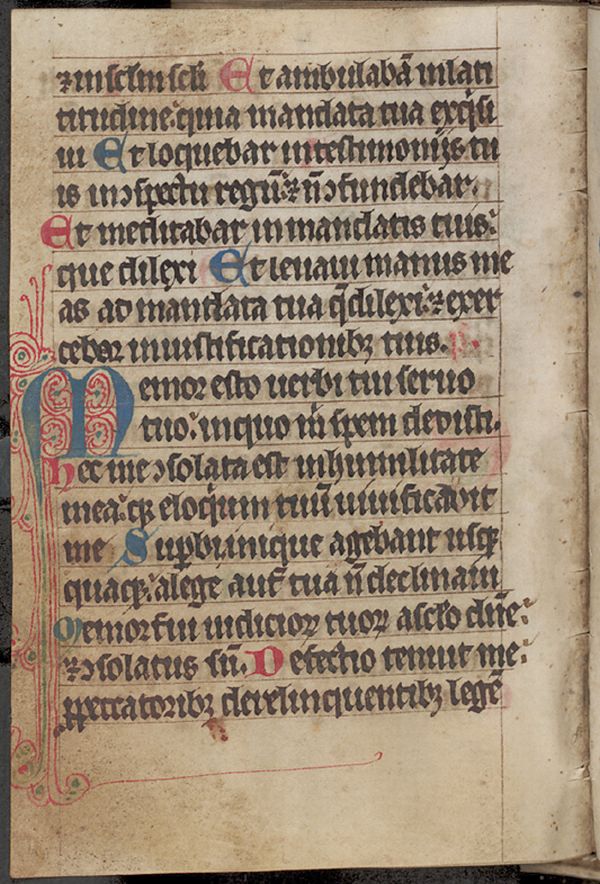 ⁊ in sc̄lm sc̄li Et ambulabā in lati
titudine: quia mandata tua exq̇si
ui Et loquebar in testimonijs tu
is in ɔspectu regū: ⁊ nō ɔfundebar.
Et meditabar in mandatis tuis:
que dilexi Et leuaui manus me
as ad mandata tua q̄ dilexi: ⁊ exer
cebor in iustificationibꝫ tuis.
Memor esto uerbi tui seruo
tuo: in quo m̄ spem dedisti.
Hec me ɔsolata est in humilitate
mea: qꝫ eloquium tuū uiuificauit
me Supbi inique agebant usqꝫ
quaqꝫ: a lege aut̄ tua nō declinaui
Memor fui iudicioꝝ tuoꝝ a sc̄lo dn̄e:
⁊ ɔsolatus sū. Defectio tenuit me:
ꝓ peccatoribꝫ derelinquentibꝫ legē